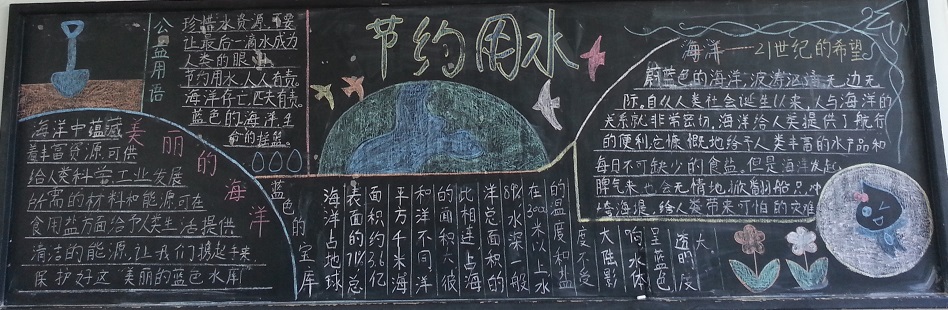 节约用水
公益用语
珍惜水资源,不要
让最后一滴水成为
人类的眼
节约用水人人有责
海洋存亡,匹夫有责。
蓝色的海洋,生
命的摇篮
美丽的海洋
海洋中蕴藏
着丰富资源,可供
给人类科学工业发展
所需的材料和能源,可在
食用盐方面给予人类生活提供
清洁的能源,让我们携起手来
保护好这"美丽的蓝色水库"
蓝色的宝库
海洋占地球
表面的71%总
面积约3.6亿
平方千米海
和洋不同洋
的面积大彼
此相连占海
洋总面积的
89%水深一般
在3000米以上水
的温度和盐
度不受
大陆影
响水体
呈蓝色
透明度
大
海洋——21世纪的希望。
蔚蓝色的海洋,波涛汹涌,无边无
际。自从人类社会诞生以来,人与海洋的
关系就非常密切,海洋给人类提供了航行
的便利,它慷慨地给予人类丰富的水产品和
每日不可缺少的食盐。但是海洋发起
脾气来,也会无情地掀翻船只,冲
海堤,给人类带来可怕的灾难